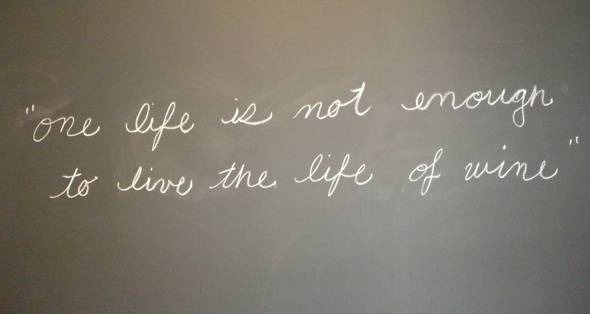 "one life is not enough
to live the life of wine"